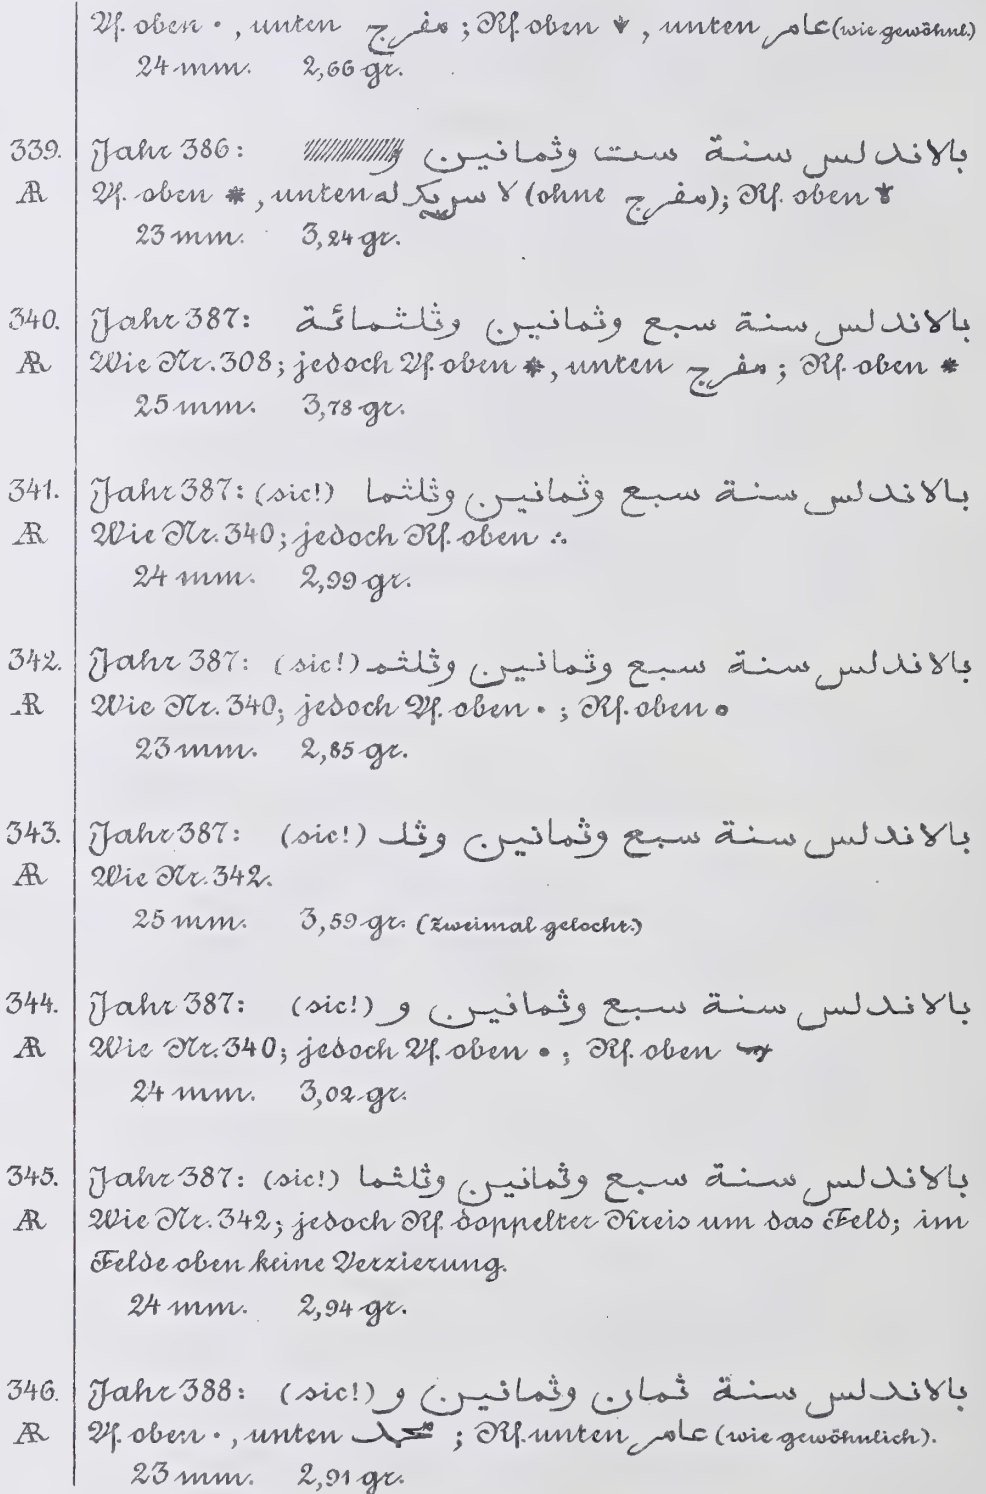 Vf. oben •, unten مفرج ; Rf. oben, unten عامر (wie gewöhnl.)
24 mm. 2,66 gr.
339. Jahr 386: بالاندلس سنة ست وثمانين و
AR Vf. oben *, unten لا سريك له (ohne مفرج); Rf. oben
23 mm. 3,24 gr.
340. Jahr 387: بالاندلس سنة سبع وثمانين وثلثمائة
AR Wie Nr. 308; jedoch Vf. oben *, unten مفرج ; Rf. oben *
25 mm. 3,78 gr.
341. Jahr 387: (sic!) بالاندلس سنة سبع وثمانين وثلثما
AR Wie Nr. 340; jedoch Rf. oben ∴
24 mm. 2,99 gr.
342. Jahr 387: (sic!) بالاندلس سنة سبع وثمانين وثلثم
AR Wie Nr. 340; jedoch Vf. oben • ; Rf. oben •
23 mm. 2,85 gr.
343. Jahr 387: (sic!) بالاندلس سنة سبع وثمانين وثل
AR Wie Nr. 342.
25 mm. 3,59 gr. (Zweimal gelocht.)
344. Jahr 387: (sic!) بالاندلس سنة سبع وثمانين و
AR Wie Nr. 340; jedoch Vf. oben • ; Rf. oben
24 mm. 3,02 gr.
345. Jahr 387: (sic!) بالاندلس سنة سبع وثمانين وثلثما
AR Wie Nr. 342; jedoch Rf. doppelter Kreis um das Feld; im
Felde oben keine Verzierung.
24 mm. 2,94 gr.
346. Jahr 388: (sic!) بالاندلس سنة ثمان وثمانين و
AR Vf. oben •, unten محمد ; Rf. unten عامر (wie gewöhnlich).
23 mm. 2,91 gr.